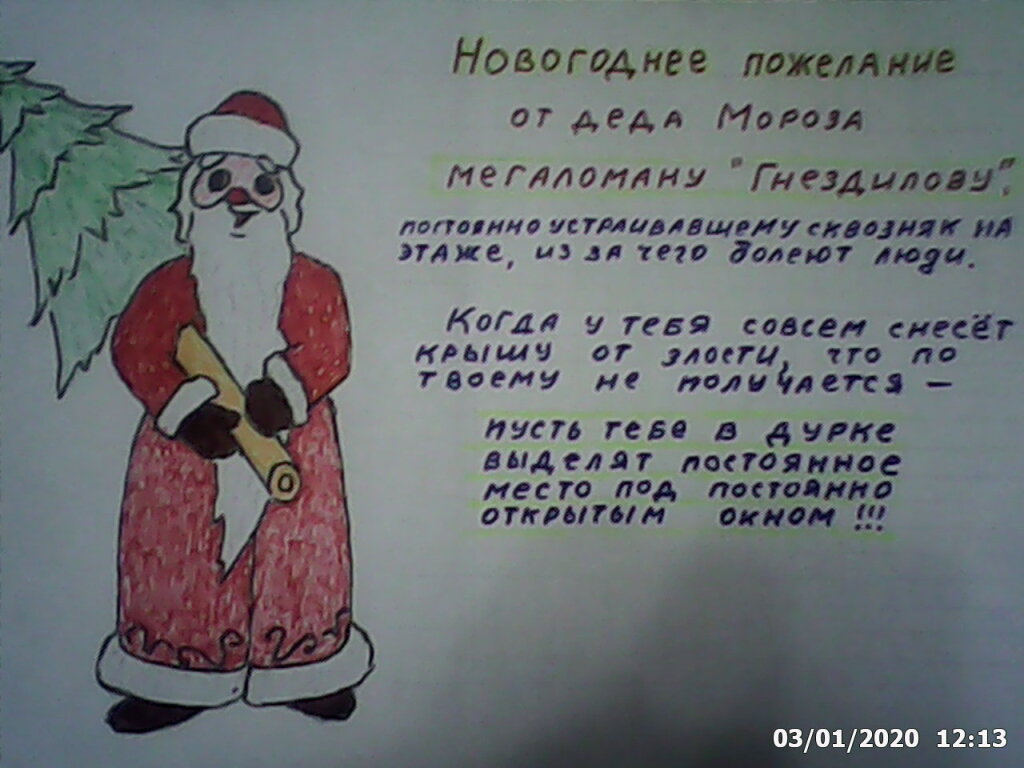 Новогоднее пожелание
от деда Мороза
мегаломану "Гнездилову".
постоянно устраивавшему сквозняк на
этаже, из за чего болеют люди.
Когда у тебя совсем снесёт
крышу от злости, что по
твоему не получается –
пусть тебе в дурке
выделят постоянное
место под постоянно
открытым окном !!!
03/01/2020 12:13